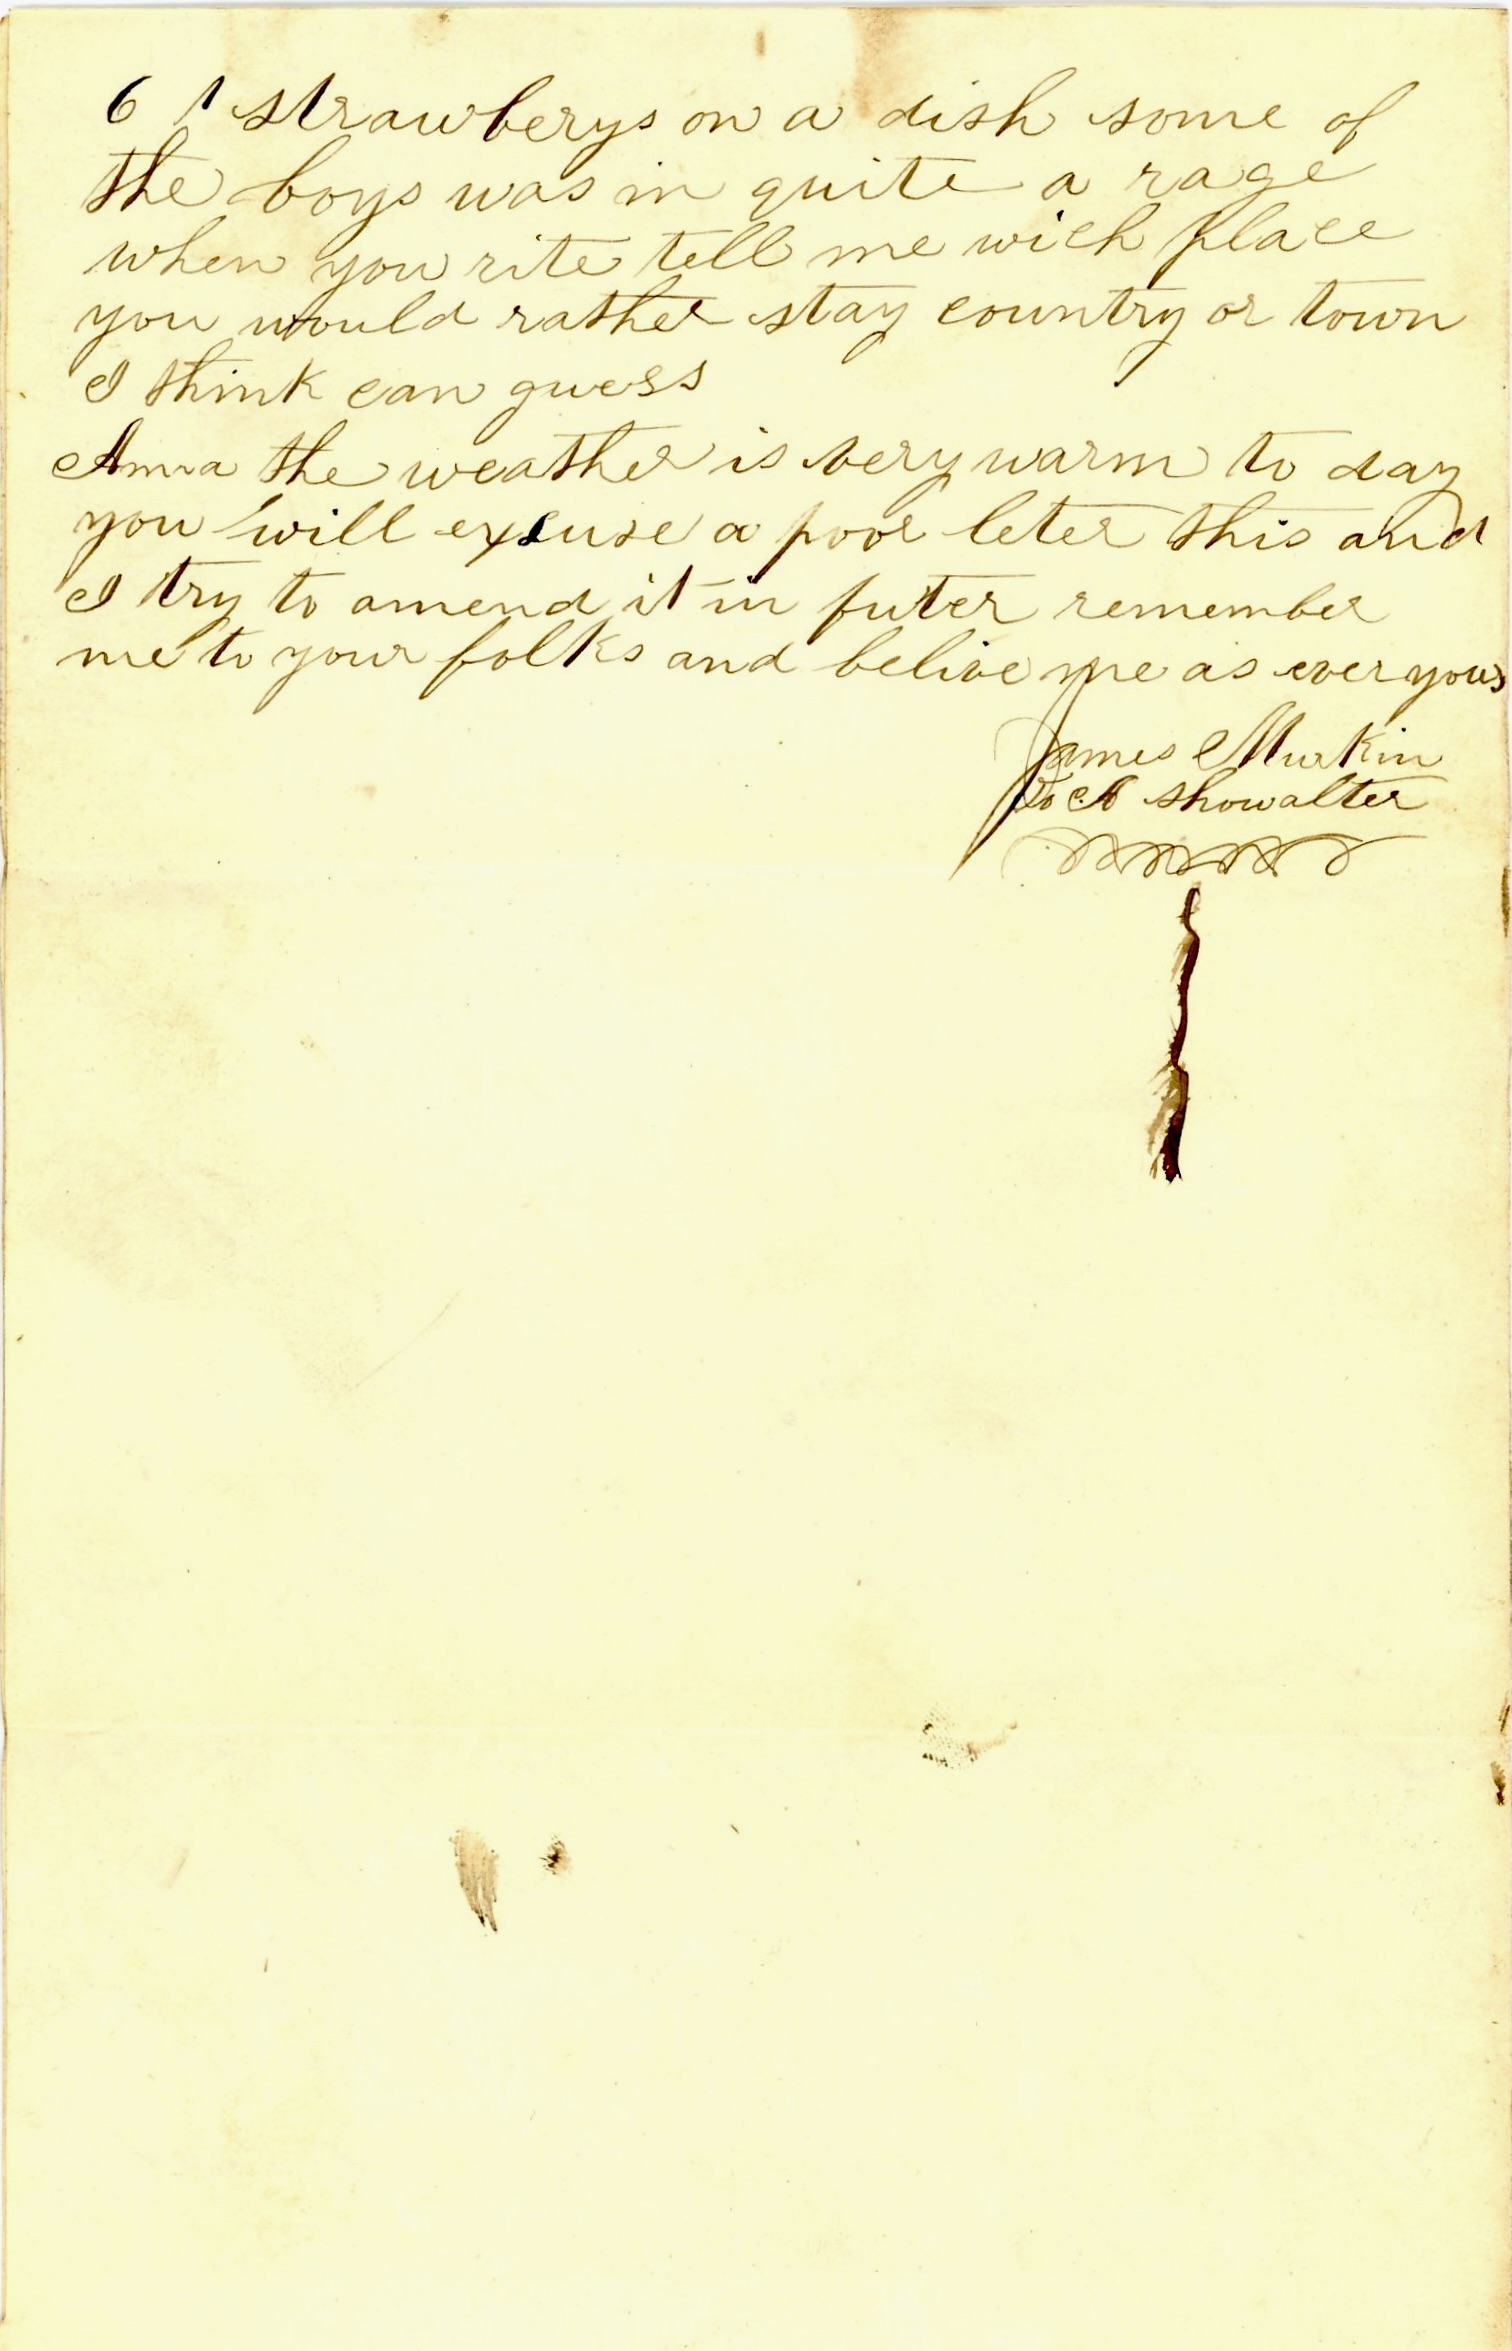 6 1 strawberys on a dish some of
the boys was in quite a rage
when you rite tell me wich place
you would rather stay country or town
I think can guess
Anna the weather is very warm to day
you will excuse a poor leter this and
I try to amend it in futer remember
me to your folks and belive me as ever yours
James Murkin
To A showalter